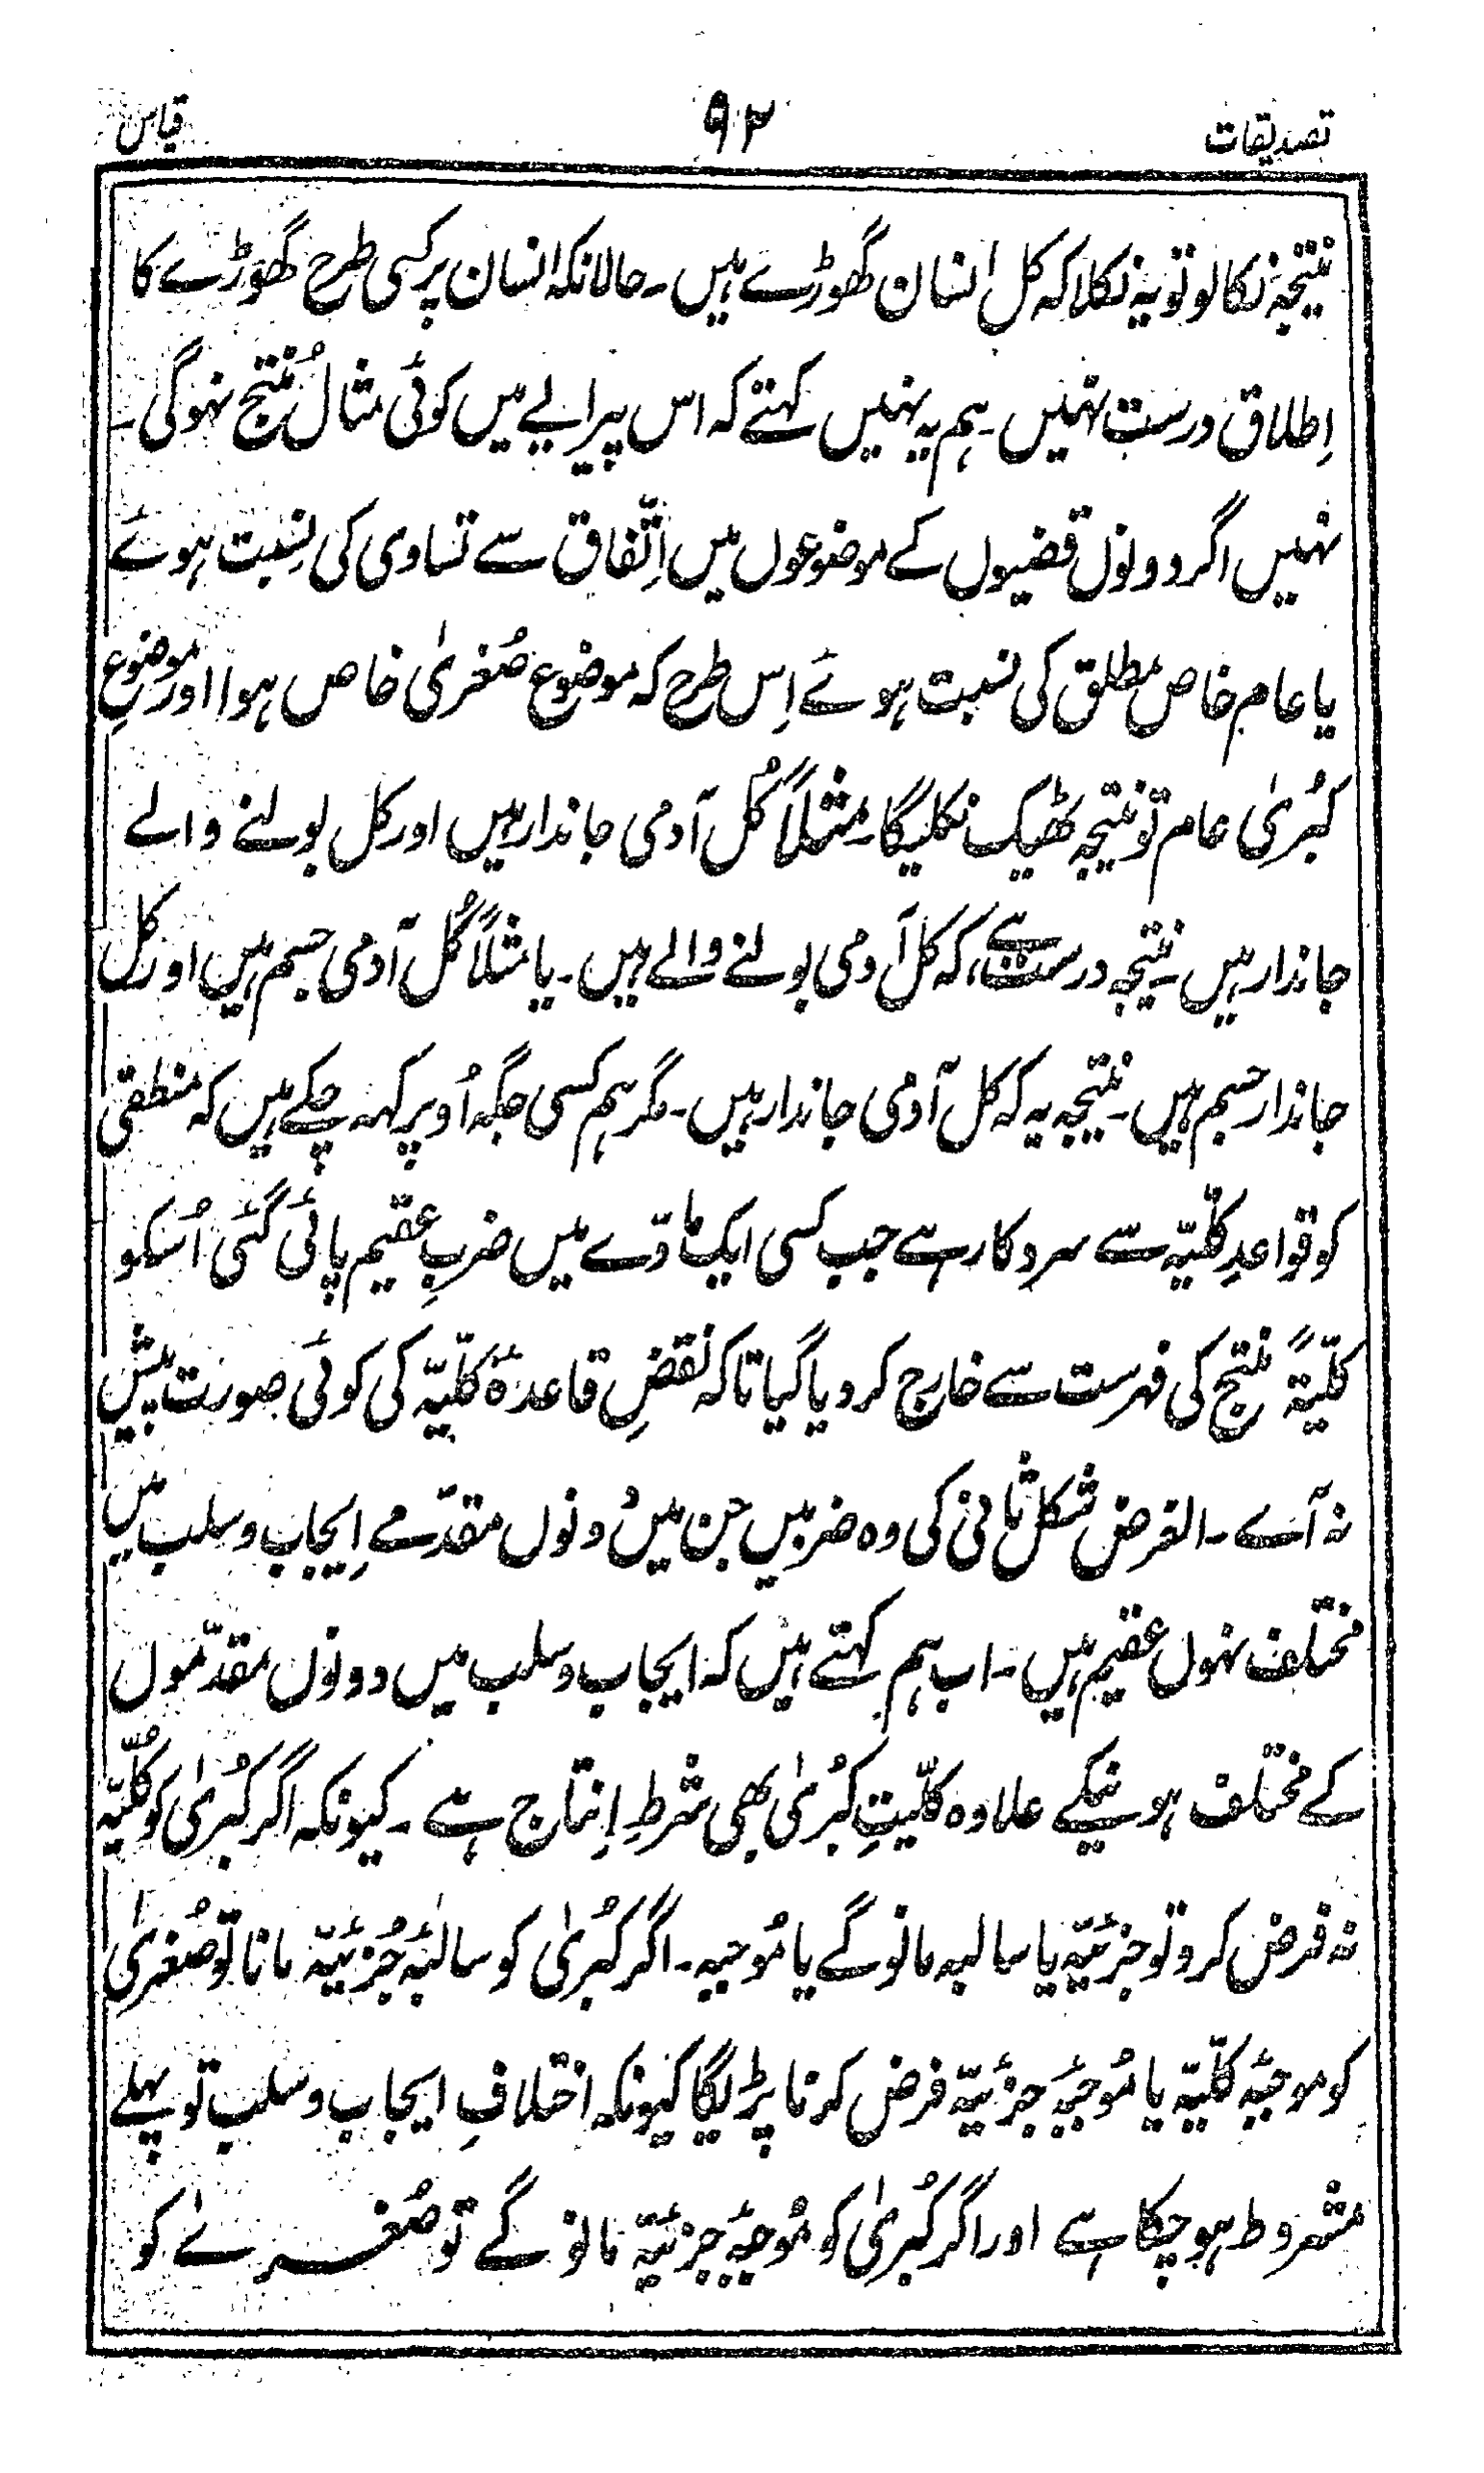 تصدیقات ۹۲ قیاس
نتیجہ نکالو تو یہ نکلا کہ کل انسان گھوڑے ہیں ۔ حالانکہ انسان پر کسی طرح گھوڑے کا
اِطلاق درست نہیں ۔ ہم یہ نہیں کہتے کہ اس پیرایے میں کوئی مثال مُنتج نہوگی ۔
نہیں اگر دونوں قضیوں کے موضوعوں میں اِتّفاق سے تساوی کی نِسبت ہوئے
یا عام خاص مطلق کی نسبت ہوئے اِس طرح کہ موضوع صُغریٰ خاص ہوا اور موضوعِ
کُبریٰ عام تو نتیجہ ٹھیک نکلیگا ۔ مثلاً کُل آدمی جاندار ہیں اور کل بولنے والے
جاندار ہیں ۔ نتیجہ درست ہے، کہ کل آدمی بولنے والے ہیں ۔ یا مثلاً کُل آدمی جسم ہیں اور کل
جاندار جسم ہیں ۔ نتیجہ یہ کہ کل آدمی جاندار ہیں ۔ مگر ہم کسی جگہ اُوپر کہہ چکے ہیں کہ منطقی
کو قواعدِ کلّیّہ سے سروکار ہے جب کسی ایک مادّے میں ضربِ عقیم پائی گئی اُسکو
کلّیّۃً منتج کی فہرست سے خارج کر دیا گیا تاکہ نقضِ قاعدۂ کلّیّہ کی کوئی صورت پیش
نہ آے ۔ الغرض شکل ثانی کی وہ ضربیں جن میں دونوں مقدّمے اِیجاب و سلب میں
مختلف نہوں عقیم ہیں ۔ اب ہم کہتے ہیں کہ ایجاب و سلب میں دونوں مقدّموں
کے مختلف ہونیکے علاوہ کلّیتِ کُبریٰ بھی شرطِ اِنتاج ہے ۔ کیونکہ اگر کُبریٰ کو کُلّیّہ
نہ فرض کرو تو جزئیّہ یا سالبہ مانوگے یا مُوجبہ ۔ اگر کُبریٰ کو سالبۂ جُزئیّہ مانا تو صُغریٰ
کو موجبۂ کلّیّہ یا مُوجبۂ جزئیّہ فرض کرنا پڑیگا کیونکہ اختلافِ ایجاب و سلب تو پہلے
مشروط ہو چکا ہے اور اگر کُبریٰ کو مُوجبۂ جزئیّہ مانو گے تو صُغرےٰ کو